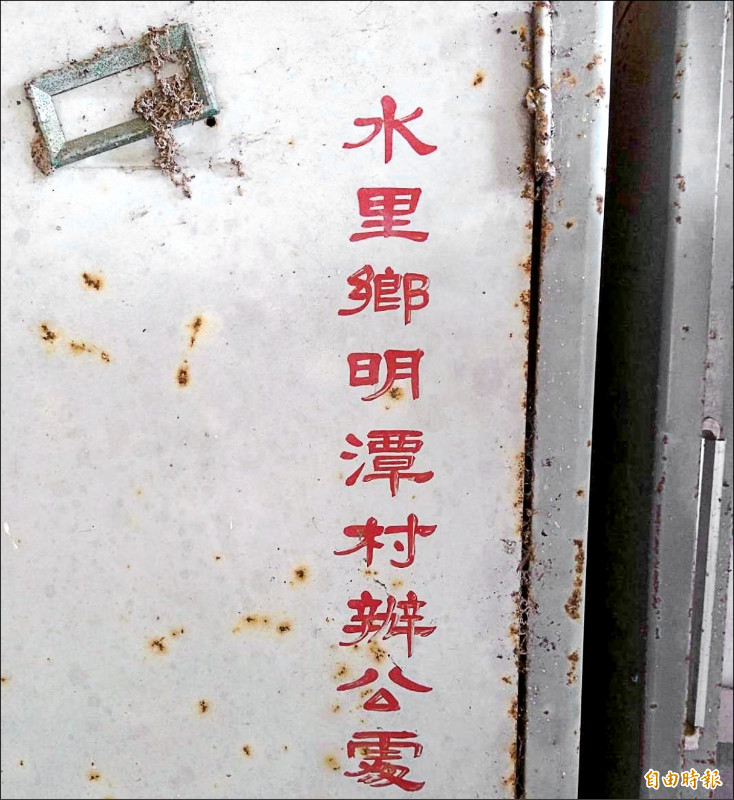 水里鄉明潭村辦公處
自由時報